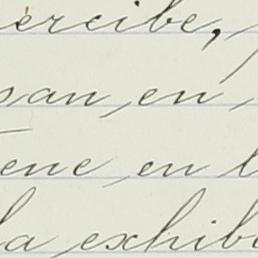 ercibe,
san en
ene en l
la exhib